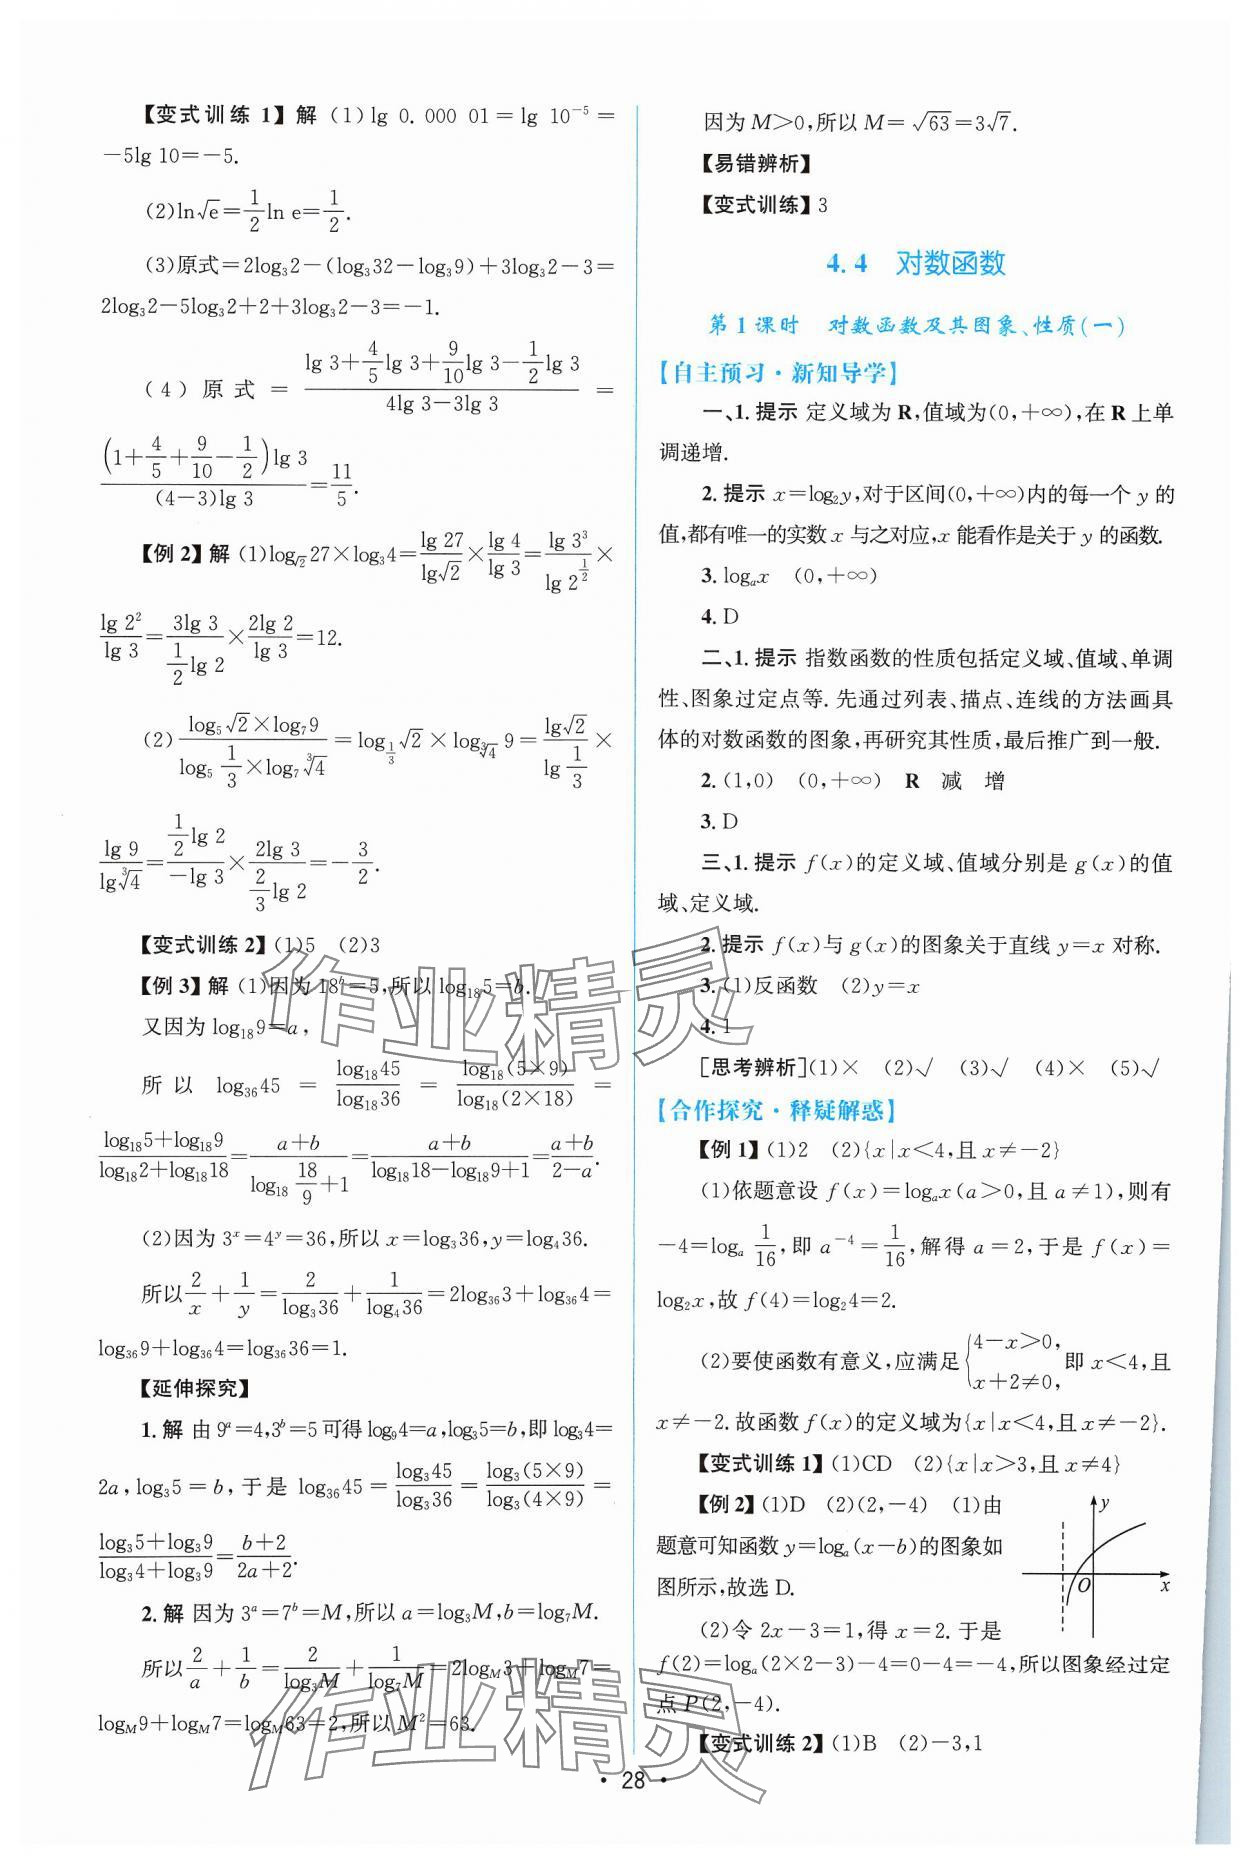 【变式训练 1】解 (1)lg 0.000 01=lg 10⁻⁵=
-5lg 10=-5.
(2)ln√e=1/2 ln e=1/2.
(3)原式=2log₃2-(log₃32-log₃9)+3log₃2-3=
2log₃2-5log₃2+2+3log₃2-3=-1.
(4)原式=(lg 3+4/5 lg 3+9/10 lg 3-1/2 lg 3)/(4lg 3-3lg 3)=
(1+4/5+9/10-1/2)lg 3/((4-3)lg 3)=11/5.
【例 2】解 (1)log_√2 27×log₃4=lg 27/lg√2×lg 4/lg 3=lg 3³/lg 2^(1/2)×
lg 2²/lg 3=3lg 3/(1/2 lg 2)×2lg 2/lg 3=12.
(2)(log₅√2×log₇9)/(log₅ 1/3×log₇∛4)=log_(1/3)√2×log_∛4 9=lg√2/lg 1/3×
lg 9/lg∛4=(1/2 lg 2)/(-lg 3)×2lg 3/(2/3 lg 2)=-3/2.
【变式训练 2】(1)5 (2)3
【例 3】解 (1)因为 18ᵇ=5,所以 log₁₈5=b.
又因为 log₁₈9=a,
所以 log₃₆45=log₁₈45/log₁₈36=log₁₈(5×9)/log₁₈(2×18)=
(log₁₈5+log₁₈9)/(log₁₈2+log₁₈18)=(a+b)/(log₁₈ 18/9+1)=(a+b)/(log₁₈18-log₁₈9+1)=(a+b)/(2-a).
(2)因为 3ˣ=4ʸ=36,所以 x=log₃36,y=log₄36.
所以 2/x+1/y=2/log₃36+1/log₄36=2log₃₆3+log₃₆4=
log₃₆9+log₃₆4=log₃₆36=1.
【延伸探究】
1. 解 由 9ᵃ=4,3ᵇ=5 可得 log₉4=a,log₃5=b,即 log₃4=
2a,log₃5=b,于是 log₃₆45=log₃45/log₃36=log₃(5×9)/log₃(4×9)=
(log₃5+log₃9)/(log₃4+log₃9)=(b+2)/(2a+2).
2. 解 因为 3ᵃ=7ᵇ=M,所以 a=log₃M,b=log₇M.
所以 2/a+1/b=2/log₃M+1/log₇M=2log_M 3+log_M 7=
log_M 9+log_M 7=log_M 63=2,所以 M²=63.
因为 M>0,所以 M=√63=3√7.
【易错辨析】
【变式训练】3
4.4 对数函数
第 1 课时 对数函数及其图象、性质(一)
【自主预习·新知导学】
一、1. 提示 定义域为 R,值域为(0,+∞),在 R 上单
调递增.
2. 提示 x=log₂y,对于区间(0,+∞)内的每一个 y 的
值,都有唯一的实数 x 与之对应,x 能看作是关于 y 的函数.
3. logₐx (0,+∞)
4. D
二、1. 提示 指数函数的性质包括定义域、值域、单调
性、图象过定点等. 先通过列表、描点、连线的方法画具
体的对数函数的图象,再研究其性质,最后推广到一般.
2. (1,0) (0,+∞) R 减 增
3. D
三、1. 提示 f(x)的定义域、值域分别是 g(x)的值
域、定义域.
2. 提示 f(x)与 g(x)的图象关于直线 y=x 对称.
3. (1)反函数 (2)y=x
4. 1
[思考辨析](1)× (2)√ (3)√ (4)× (5)√
【合作探究·释疑解惑】
【例 1】(1)2 (2){x|x<4,且 x≠-2}
(1)依题意设 f(x)=logₐx(a>0,且 a≠1),则有
-4=logₐ 1/16,即 a⁻⁴=1/16,解得 a=2,于是 f(x)=
log₂x,故 f(4)=log₂4=2.
(2)要使函数有意义,应满足{4-x>0, x+2≠0,即 x<4,且
x≠-2.故函数 f(x)的定义域为{x|x<4,且 x≠-2}.
【变式训练 1】(1)CD (2){x|x>3,且 x≠4}
【例 2】(1)D (2)(2,-4) (1)由
题意可知函数 y=logₐ(x-b)的图象如
图所示,故选 D.
y
O
x
(2)令 2x-3=1,得 x=2. 于是
f(2)=logₐ(2×2-3)-4=0-4=-4,所以图象经过定
点 P(2,-4).
【变式训练 2】(1)B (2)-3,1
· 28 ·
作业精灵
作业精灵